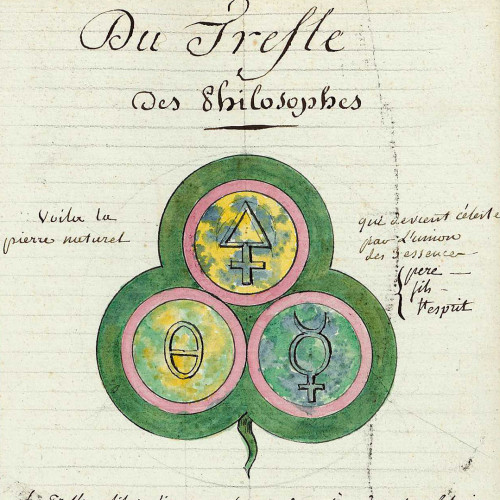 Du Trefle
Des Philosophes
Voila la
pierre naturel
qui devient céleste
par L'union
des 3 essences
pere
fils
St esprit